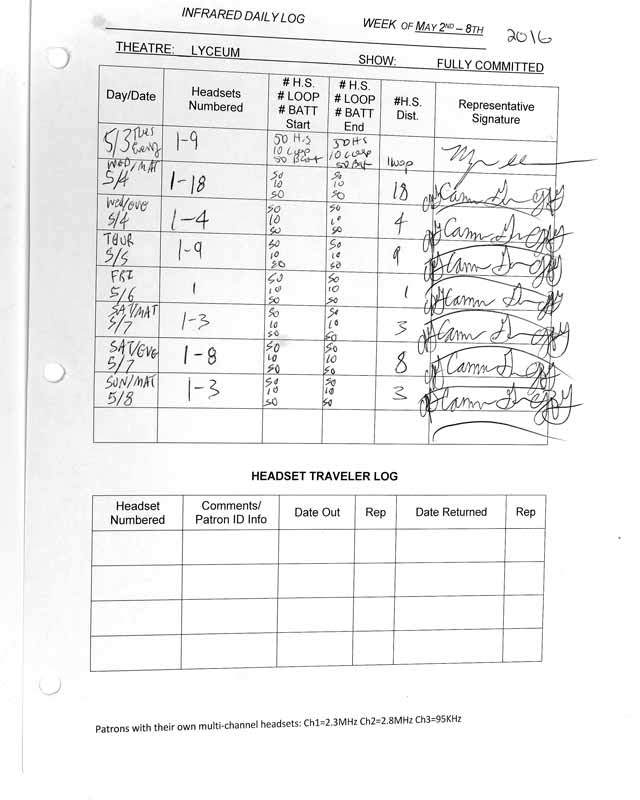 INFRARED DAILY LOG WEEK OF MAY 2ND – 8TH 2016
THEATRE: LYCEUM SHOW: FULLY COMMITTED
Day/Date Headsets Numbered # H.S. # LOOP # BATT Start # H.S. # LOOP # BATT End #H.S. Dist. Representative Signature
5/3 TUES 1-9 50 H.S 10 Loop 50 Batt 50 HS 10 Loop 50 Bat 1 loop
WED/MAT 5/4 1-18 50 10 50 50 10 50 18
WED/EVE 5/4 1-4 50 10 50 50 10 50 4
THUR 5/5 1-9 50 10 50 50 10 50 9
FRI 5/6 1 50 10 50 50 10 50 1
SAT/MAT 5/7 1-3 50 10 50 50 10 50 3
SAT/EVE 5/7 1-8 50 10 50 50 10 50 8
SUN/MAT 5/8 1-3 50 10 50 50 10 50 3
HEADSET TRAVELER LOG
Headset Numbered Comments/ Patron ID Info Date Out Rep Date Returned Rep
Patrons with their own multi-channel headsets: Ch1=2.3MHz Ch2=2.8MHz Ch3=95KHz